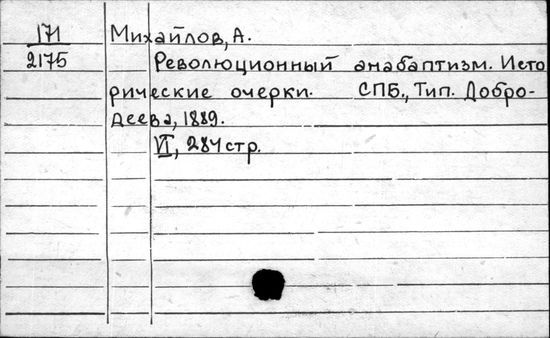 171 Михайлов, А.
2175 Революционный анабаптизм. Исто
рические очерки. СПБ., Тип. Добро-
деева, 1889.
VI, 284 стр.